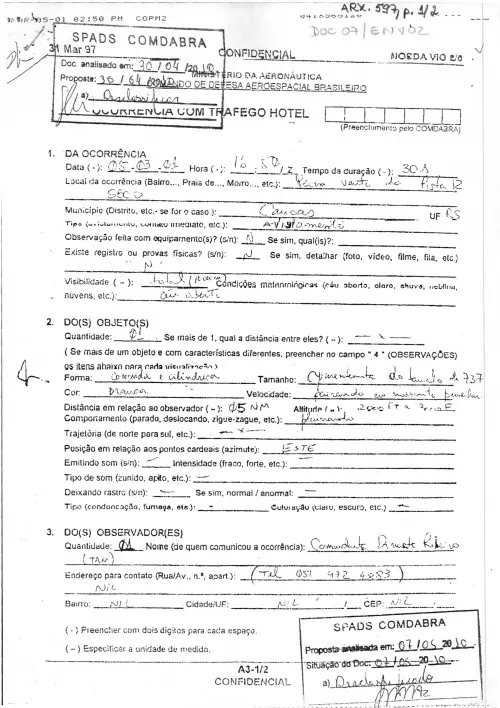 ARX. 597, p. 1/2
MAR-05-01 02:50 PM COPM2
DOC 07/ENV02
SPADS COMDABRA
31 Mar 97
CONFIDENCIAL
NOSDA VIO 2/0
Doc. analisado em: 30/04/2010
Proposta: 30/04/2010
MINISTÉRIO DA AERONÁUTICA
COMANDO DE DEFESA AEROESPACIAL BRASILEIRO
a) Desclassificar
OCORRÊNCIA COM TRÁFEGO HOTEL
(Preenchimento pelo COMDABRA)
1. DA OCORRÊNCIA
Data (-): 05.03.01 Hora (-): 16:50 Z Tempo da duração (~): 30s
Local da ocorrência (Bairro..., Praia de..., Morro..., etc.): Perna vento da Pista 12
Município (Distrito, etc.- se for o caso): Canoas UF RS
Tipo (avistamento, contato imediato, etc.): Avistamento
Observação feita com equipamento(s)? (s/n): N Se sim, qual(is)?:
Existe registro ou provas físicas? (s/n): N Se sim, detalhar (foto, vídeo, filme, fita, etc.)
N
Visibilidade (~): total Condições meteorológicas (céu aberto, claro, chuva, neblina,
nuvens, etc.): céu aberto
2. DO(S) OBJETO(S)
Quantidade: 01 Se mais de 1, qual a distância entre eles? (~): — x —
( Se mais de um objeto e com características diferentes, preencher no campo "4" (OBSERVAÇÕES)
os itens abaixo para cada visualização.)
Forma: Comprida e cilíndrica Tamanho: Aproximadamente do tamanho de 737
Cor: Branca Velocidade: pairando
Distância em relação ao observador (~): 05 NM Altitude (~): 2000 FT a 3000 FT
Comportamento (parado, deslocando, zigue-zague, etc.): planando
Trajetória (de norte para sul, etc.): — x —
Posição em relação aos pontos cardeais (azimute): LESTE
Emitindo som (s/n): — Intensidade (fraco, forte, etc.):
Tipo de som (zunido, apito, etc.): —
Deixando rastro (s/n): — Se sim, normal / anormal: —
Tipo (condensação, fumaça, etc.): - Coloração (claro, escuro, etc.) —
3. DO(S) OBSERVADOR(ES)
Quantidade: 01 Nome (de quem comunicou a ocorrência): Comandante Ribeiro
(TAM)
Endereço para contato (Rua/Av., n.º, apart.): (Tel 051 472 4883)
NIL
Bairro: NIL Cidade/UF: NIL / CEP: NIL
( - ) Preencher com dois dígitos para cada espaço.
( ~ ) Especificar a unidade de medida.
A3-1/2
CONFIDENCIAL
SPADS COMDABRA
Proposta analisada em: 07/05/2010
Situação do Doc: 07/05/2010
a) Desclassificado